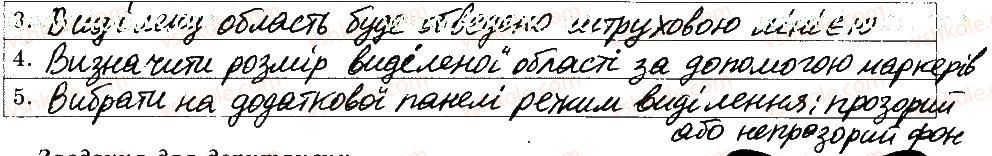 3. Виділену область буде обведено штриховою лінією
4. Визначити розмір виділеної області за допомогою маркерів
5. Вибрати на додаткової панелі режим виділення: прозорий
або непрозорий фон